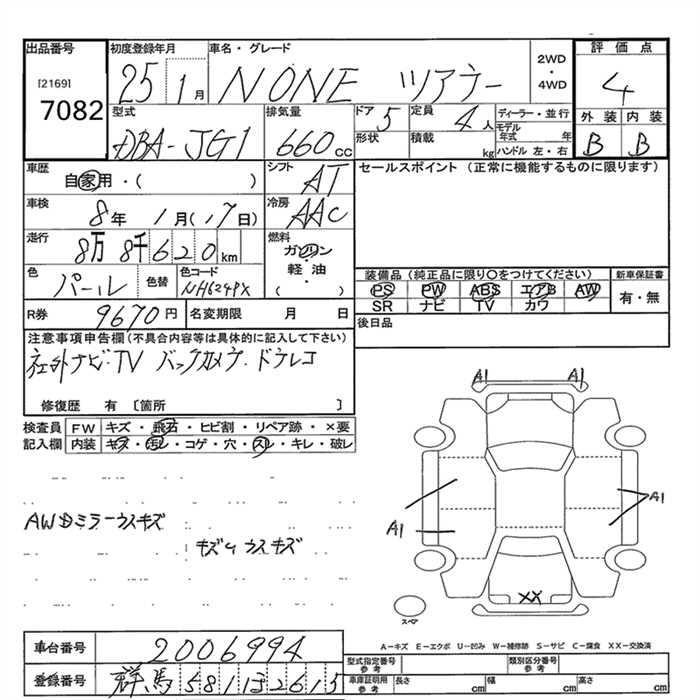 出品番号
[2169]
7082
初度登録年月
25 1月
車名・グレード
N ONE ツアラー
2WD・4WD
評価点
4
外装 内装
B B
型式
DBA-JG1
排気量
660cc
ドア 5
定員 4人
形状
積載 kg
ディーラー・並行
モデル年式 年
ハンドル 左・右
車歴
自家用・( )
シフト
AT
車検
8年 1月(17日)
冷房
AAC
走行
8万8千620km
燃料
ガソリン
軽・油
( )
色
パール
色替
色コード
NH624PX
R券 9670円
名変期限 月 日
セールスポイント (正常に機能するものに限ります)
装備品 (純正品に限り○をつけてください)
PS PW ABS エアB AW
SR ナビ TV カワ
新車保証書
有・無
後日品
注意事項申告欄(不具合内容等は具体的に記入して下さい)
社外ナビ・TV バックカメラ・ドラレコ
修復歴 有 〔箇所 〕
検査員記入欄
FW キズ・飛石・ヒビ割・リペア跡・×要
内装 キズ・汚レ・コゲ・穴・スレ・キレ・破レ
AWDミラーウスキズ
キズウスキズ
A1 A1
A1
A1
XX
スペア
A-キズ E-エクボ U-凹み W-補修跡 S-サビ C-腐食 XX-交換済
車台番号 2006994
登録番号 群馬581132615
型式指定番号 参考
類別区分番号 参考
車庫証明用 参考
長さ cm 幅 cm 高さ cm